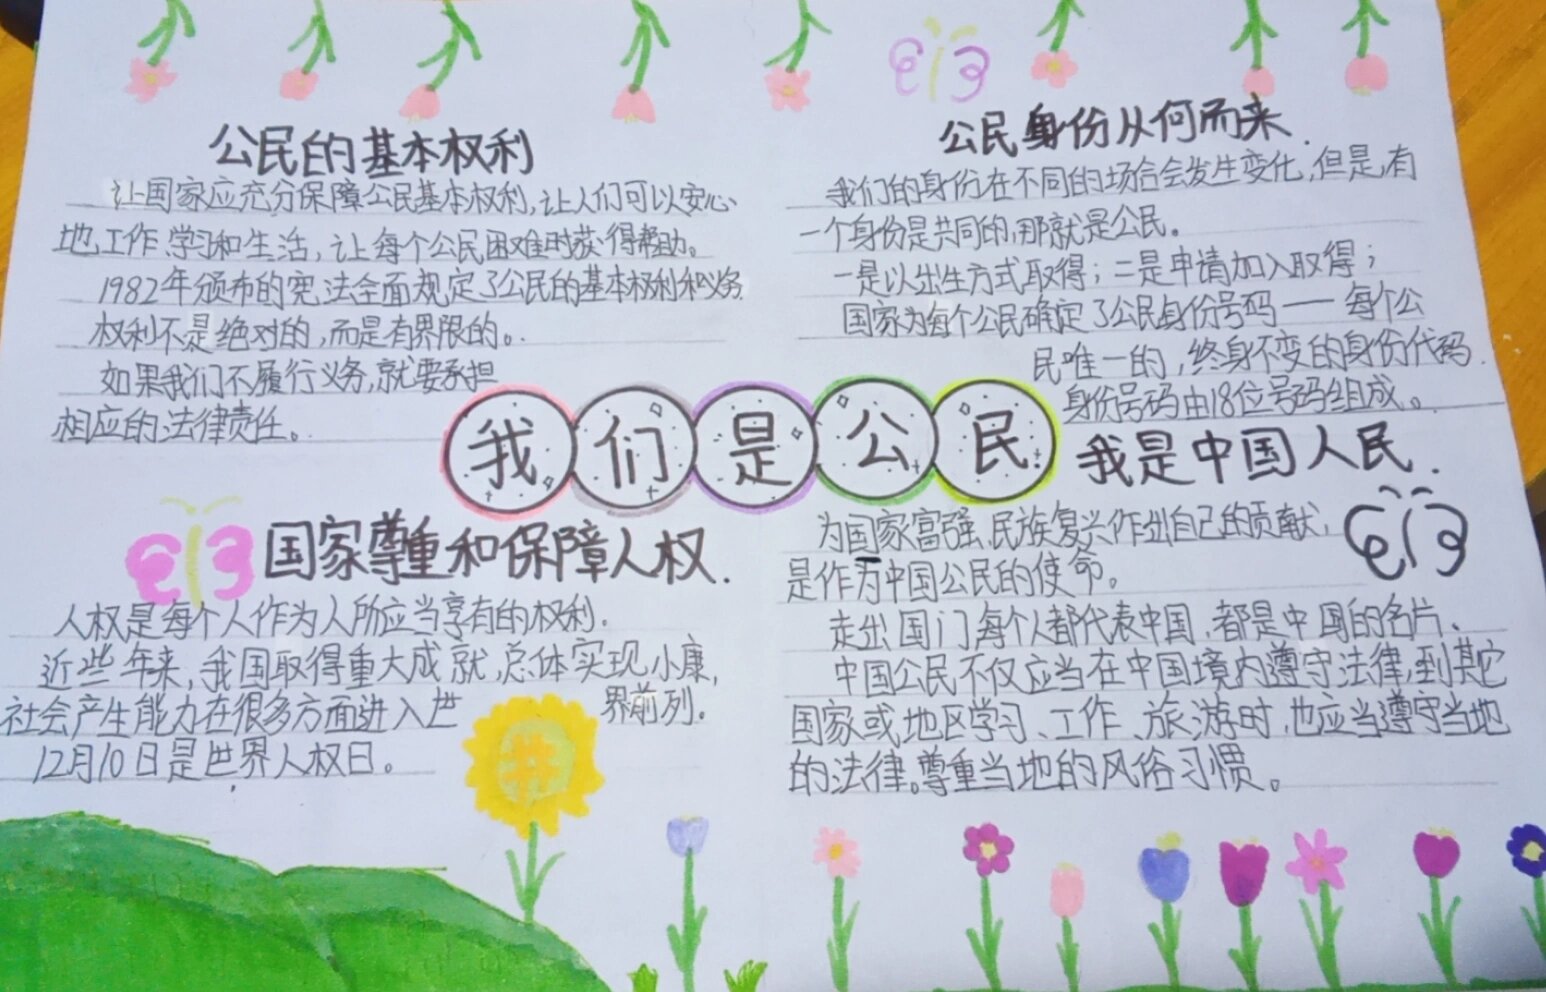 公民的基本权利
让国家应充分保障公民基本权利,让人们可以安心
地工作、学习和生活，让每个公民困难时获得帮助。
1982年颁布的宪法全面规定了公民的基本权利和义务.
权利不是绝对的,而是有界限的。
如果我们不履行义务,就要承担
相应的法律责任。
公民身份从何而来.
我们的身份在不同的场合会发生变化,但是,有
一个身份是共同的,那就是公民。
一是以出生方式取得；二是申请加入取得；
国家为每个公民确定了公民身份号码——每个公
民唯一的,终身不变的身份代码.
身份号码由18位号码组成。
我们是公民
国家尊重和保障人权.
人权是每个人作为人所应当享有的权利.
近些年来,我国取得重大成就,总体实现小康,
社会产生能力在很多方面进入世界前列。
12月10日是世界人权日。
我是中国人民.
为国家富强、民族复兴作出自己的贡献,
是作为中国公民的使命。
走出国门每个人都代表中国,都是中国的名片、
中国公民不仅应当在中国境内遵守法律,到其它
国家或地区学习、工作、旅游时,也应当遵守当地
的法律。尊重当地的风俗习惯。